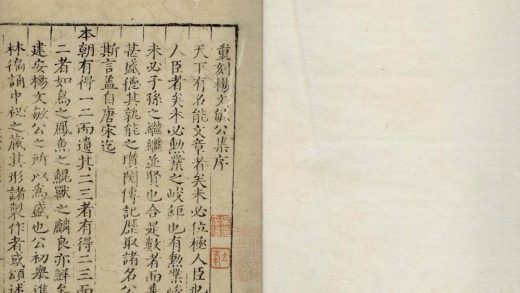 重刻楊文敏公集序
天下有名能文章者矣未必位極人臣也
人臣者矣未必勲業之峻鉅也有勲業峻
未必子孫之繼繼並賢也合是數者而
甚盛德其孰能之瓚閱傳記歷取諸名公
斯言蓋自唐宋迄
本朝有得一二而遺其二三者有得二三而
二者如鳥之鳳魚之鯤獸之麟良亦鮮矣
建安楊文敏公之所以為盛也公初舉進
林徧誦中祕之藏其形諸製作者或頌述